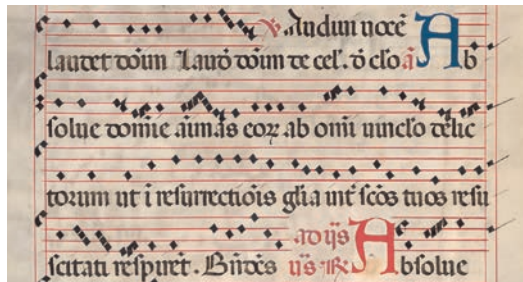 Audiun uocē
laudet doīm Laud' doīm de cel'. ō c̄lo a Ab
solue domīe aīmas eoꝝ ab omī uinclo delic
torum ut ī resurrectiōis gl̄ia int' scōs tuos resu
scitati respiret. Bn̄dc̄s ad ijs Absolue
ijs R